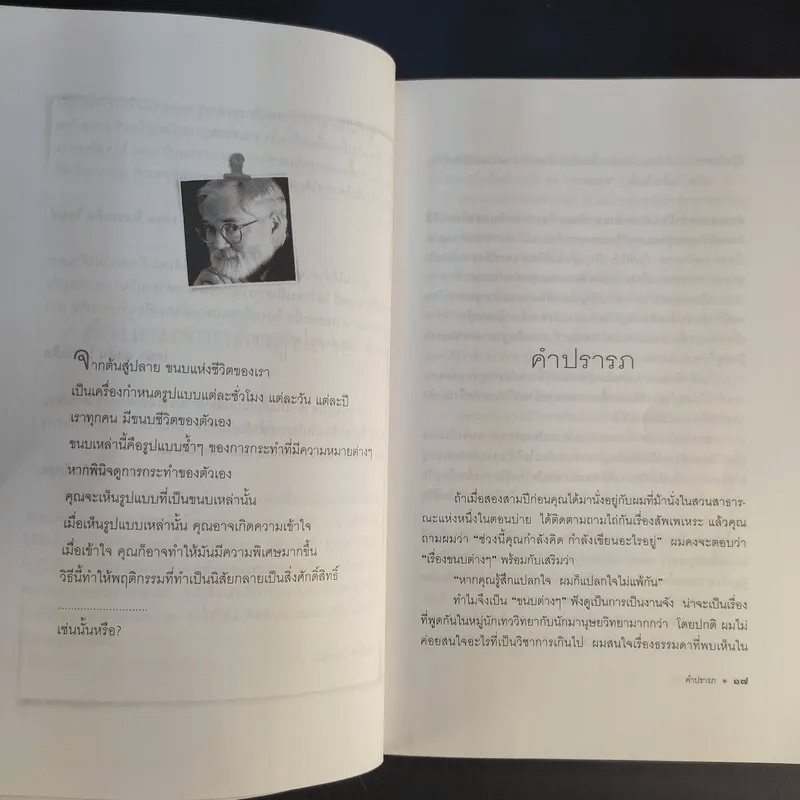 จากต้นสู่ปลาย ขนบแห่งชีวิตของเรา
เป็นเครื่องกำหนดรูปแบบแต่ละชั่วโมง แต่ละวัน แต่ละปี
เราทุกคน มีขนบชีวิตของตัวเอง
ขนบเหล่านี้คือรูปแบบซ้ำๆ ของการกระทำที่มีความหมายต่างๆ
หากพินิจดูการกระทำของตัวเอง
คุณจะเห็นรูปแบบที่เป็นขนบเหล่านั้น
เมื่อเห็นรูปแบบเหล่านั้น คุณอาจเกิดความเข้าใจ
เมื่อเข้าใจ คุณก็อาจทำให้มันมีความพิเศษมากขึ้น
วิธีนี้ทำให้พฤติกรรมที่ทำเป็นนิสัยกลายเป็นสิ่งศักดิ์สิทธิ์
............................
เช่นนั้นหรือ?
คำปรารภ
ถ้าเมื่อสองสามปีก่อนคุณได้มานั่งอยู่กับผมที่ม้านั่งในสวนสาธาร-
ณะแห่งหนึ่งในตอนบ่าย ได้ติดตามถามไถ่กันเรื่องสัพเพเหระ แล้วคุณ
ถามผมว่า “ช่วงนี้คุณกำลังคิด กำลังเขียนอะไรอยู่” ผมคงจะตอบว่า
“เรื่องขนบต่างๆ” พร้อมกับเสริมว่า
“หากคุณรู้สึกแปลกใจ ผมก็แปลกใจไม่แพ้กัน”
ทำไมจึงเป็น “ขนบต่างๆ” ฟังดูเป็นการเป็นงานจัง น่าจะเป็นเรื่อง
ที่พูดกันในหมู่นักเทววิทยากับนักมานุษยวิทยามากกว่า โดยปกติ ผมไม่
ค่อยสนใจอะไรที่เป็นวิชาการเกินไป ผมสนใจเรื่องธรรมดาที่พบเห็นใน
คำปรารภ ๑๗